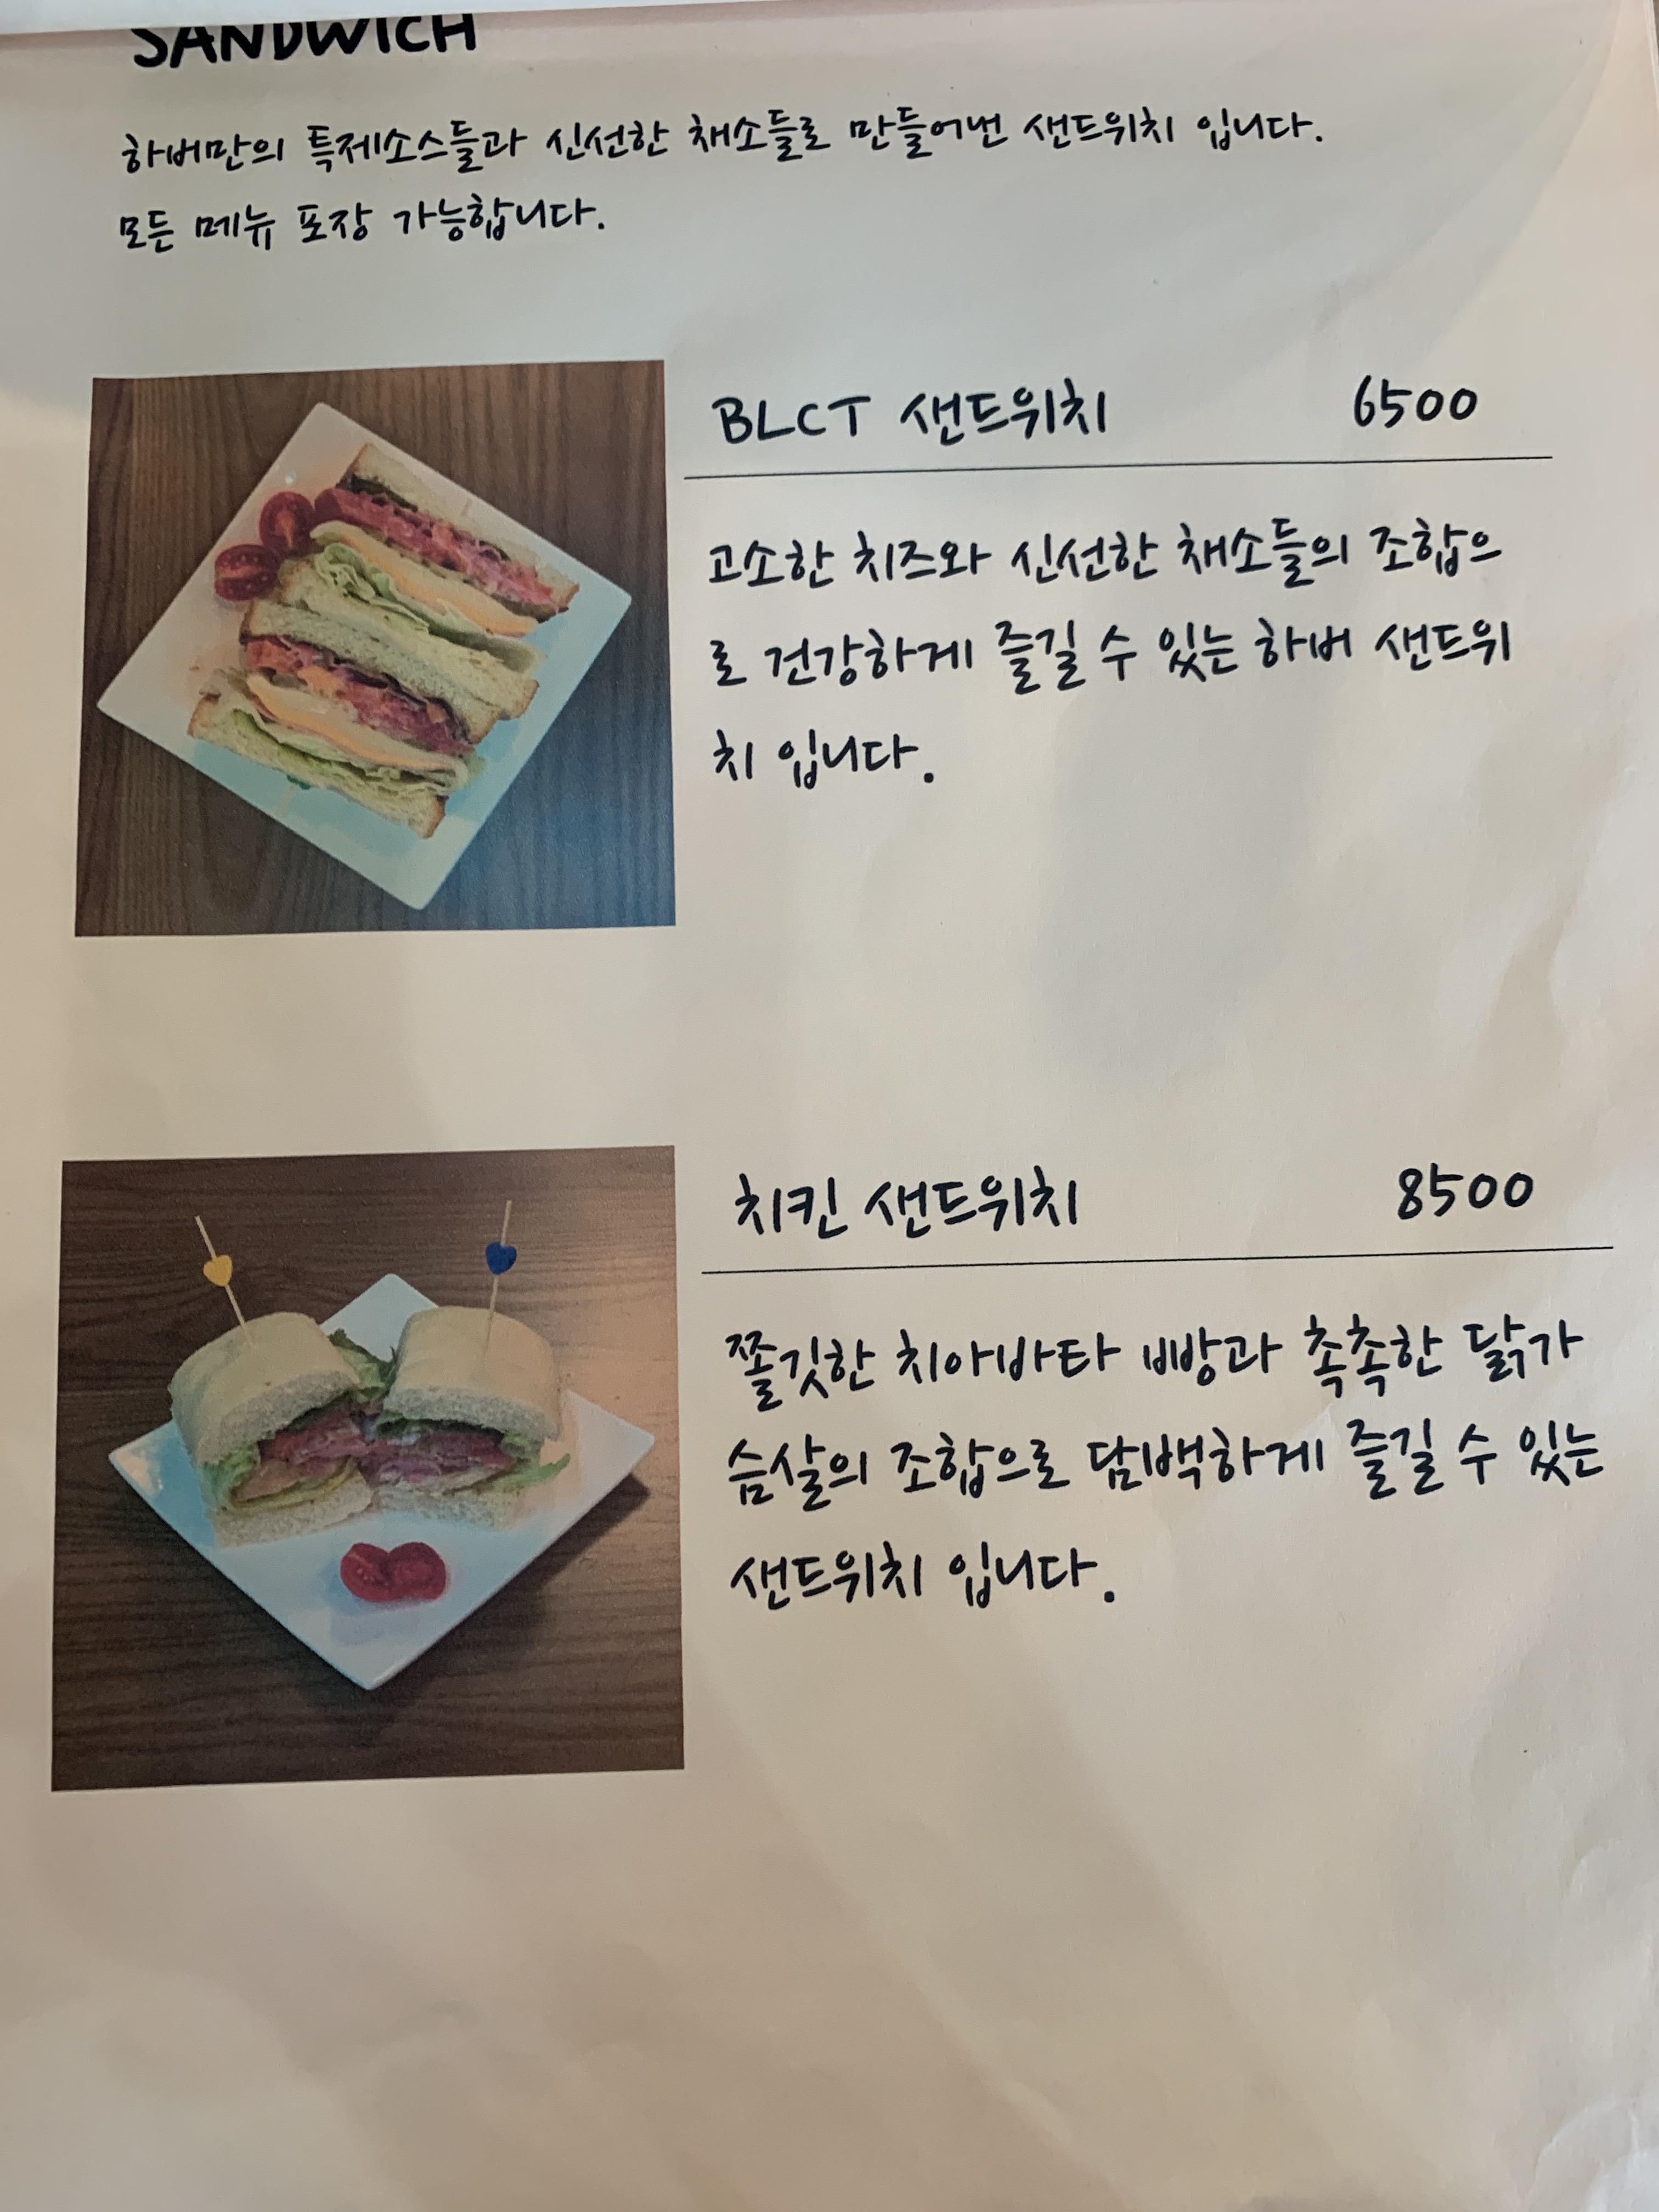 SANDWICH
하버만의 특제소스들과 신선한 채소들로 만들어낸 샌드위치 입니다.
모든 메뉴 포장 가능합니다.
BLCT 샌드위치 6500
고소한 치즈와 신선한 채소들의 조합으
로 건강하게 즐길 수 있는 하버 샌드위
치 입니다.
치킨 샌드위치 8500
쫄깃한 치아바타 빵과 촉촉한 닭가
슴살의 조합으로 담백하게 즐길 수 있는
샌드위치 입니다.